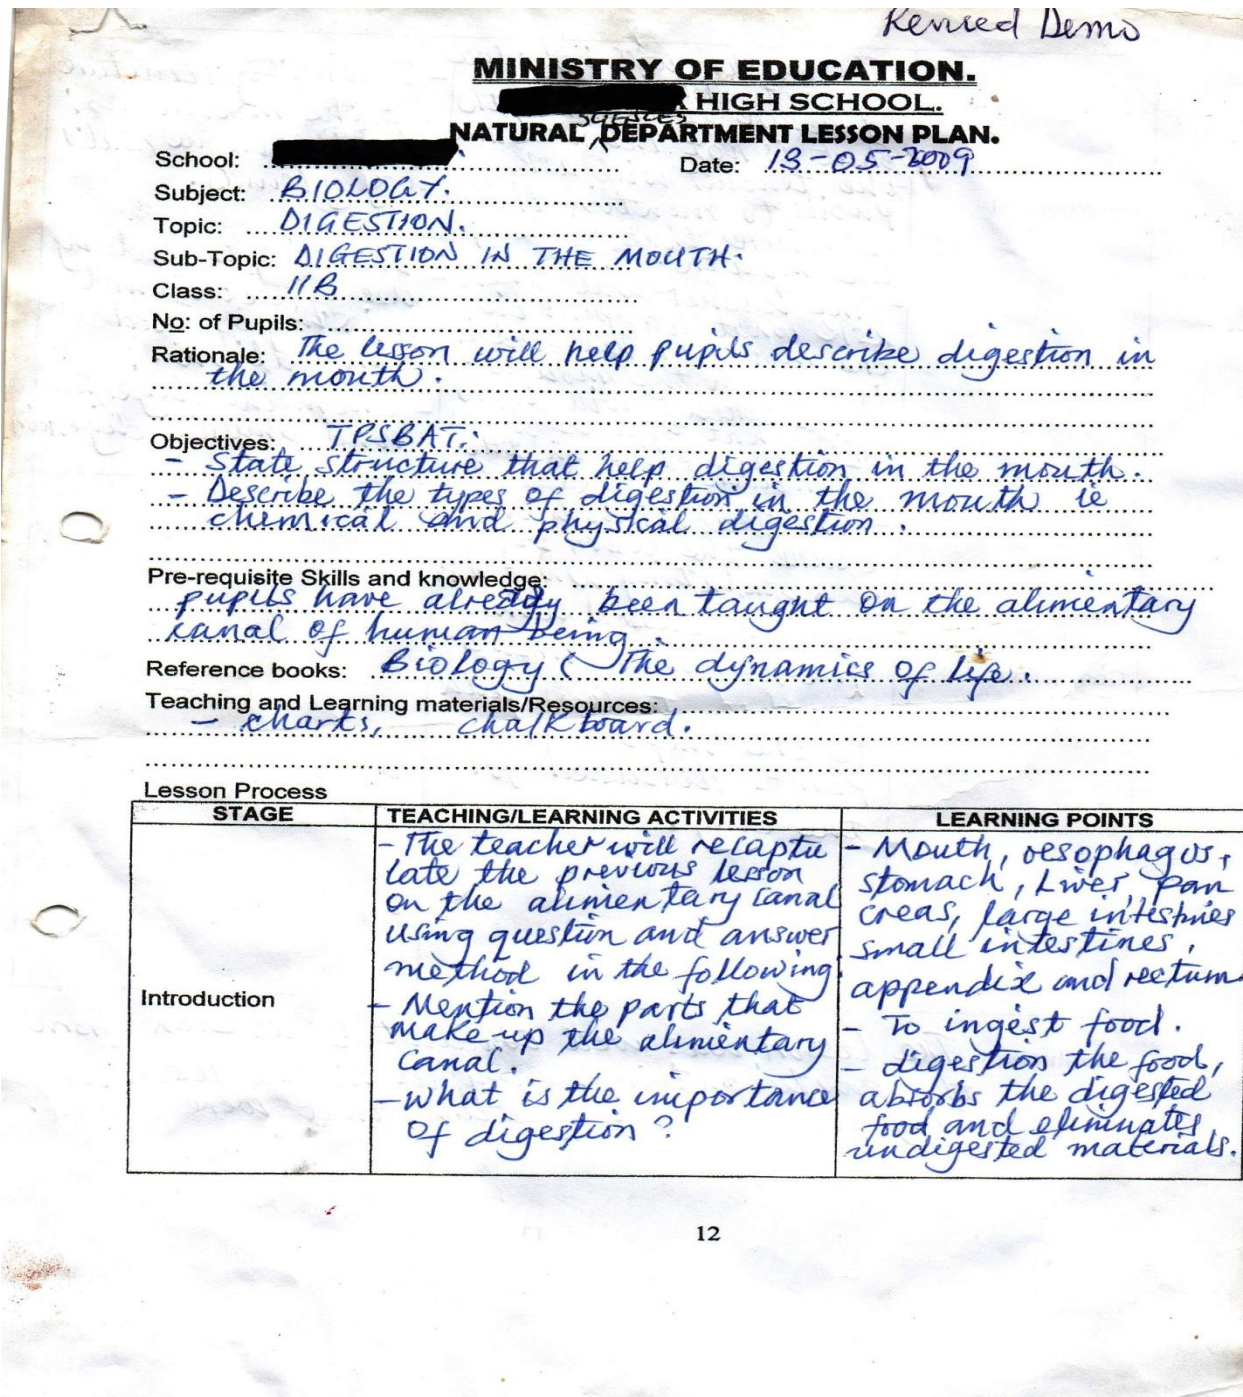 Revised Demo
MINISTRY OF EDUCATION.
HIGH SCHOOL.
SCIENCES
NATURAL DEPARTMENT LESSON PLAN.
School: Date: 13-05-2009
Subject: BIOLOGY.
Topic: DIGESTION.
Sub-Topic: DIGESTION IN THE MOUTH.
Class: 11B
No: of Pupils:
Rationale: The lesson will help pupils describe digestion in
the mouth.
Objectives: TPSBAT:
- State structure that help digestion in the mouth.
- Describe the types of digestion in the mouth ie
chemical and physical digestion.
Pre-requisite Skills and knowledge:
pupils have already been taught on the alimentary
canal of human being.
Reference books: Biology ( The dynamics of life.
Teaching and Learning materials/Resources:
- charts, - chalkboard.
Lesson Process
STAGE
TEACHING/LEARNING ACTIVITIES
LEARNING POINTS
Introduction
- The teacher will recaptu
late the previous lesson
on the alimentary canal
using question and answer
method in the following.
- Mention the parts that
make up the alimentary
canal.
- what is the importance
of digestion?
- Mouth, oesophagus,
stomach, Liver, pan
creas, large intestines
small intestines,
appendix and rectum
- To ingest food.
- digestion the food,
absorbs the digested
food and eliminates
undigested materials.
12